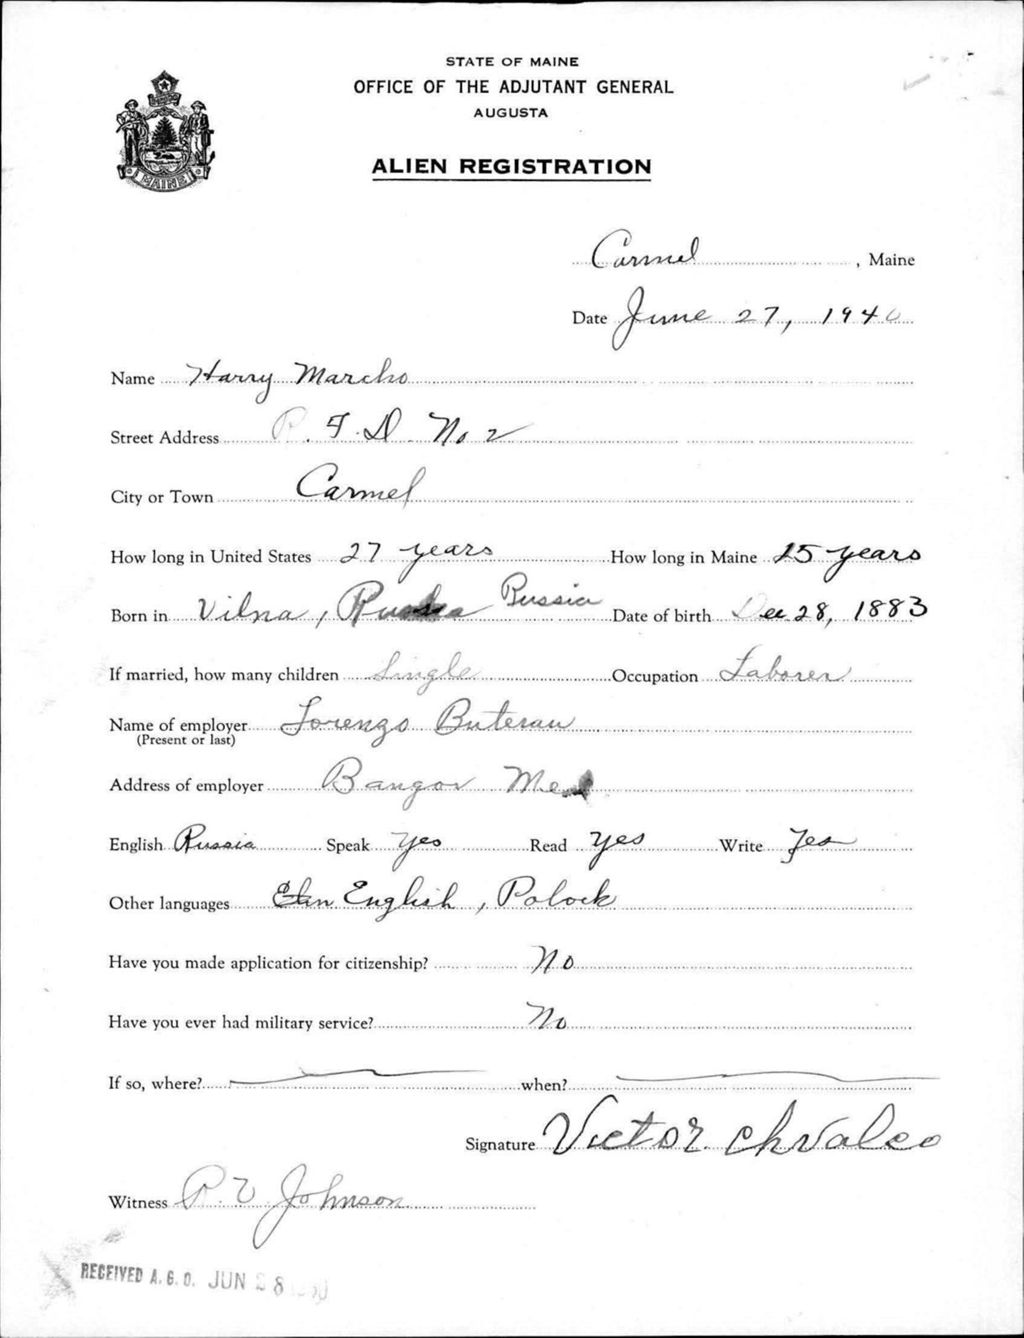 STATE OF MAINE
OFFICE OF THE ADJUTANT GENERAL
AUGUSTA
ALIEN REGISTRATION
MAINE
Carmel, Maine
Date June 27, 1940
Name Harry Marcho
Street Address R. F. D. No 2
City or Town Carmel
How long in United States 27 years How long in Maine 25 years
Born in Vilna, Russia Russia Date of birth Dec 28, 1883
If married, how many children Single Occupation Laborer
Name of employer Lorenzo Buterau
(Present or last)
Address of employer Bangor Me
English Russia Speak Yes Read Yes Write Yes
Other languages English, Polock
Have you made application for citizenship? No
Have you ever had military service? No
If so, where? when?
Signature Victor Chvalco
Witness R. V Johnson
RECEIVED A.G.O. JUN 28 1940